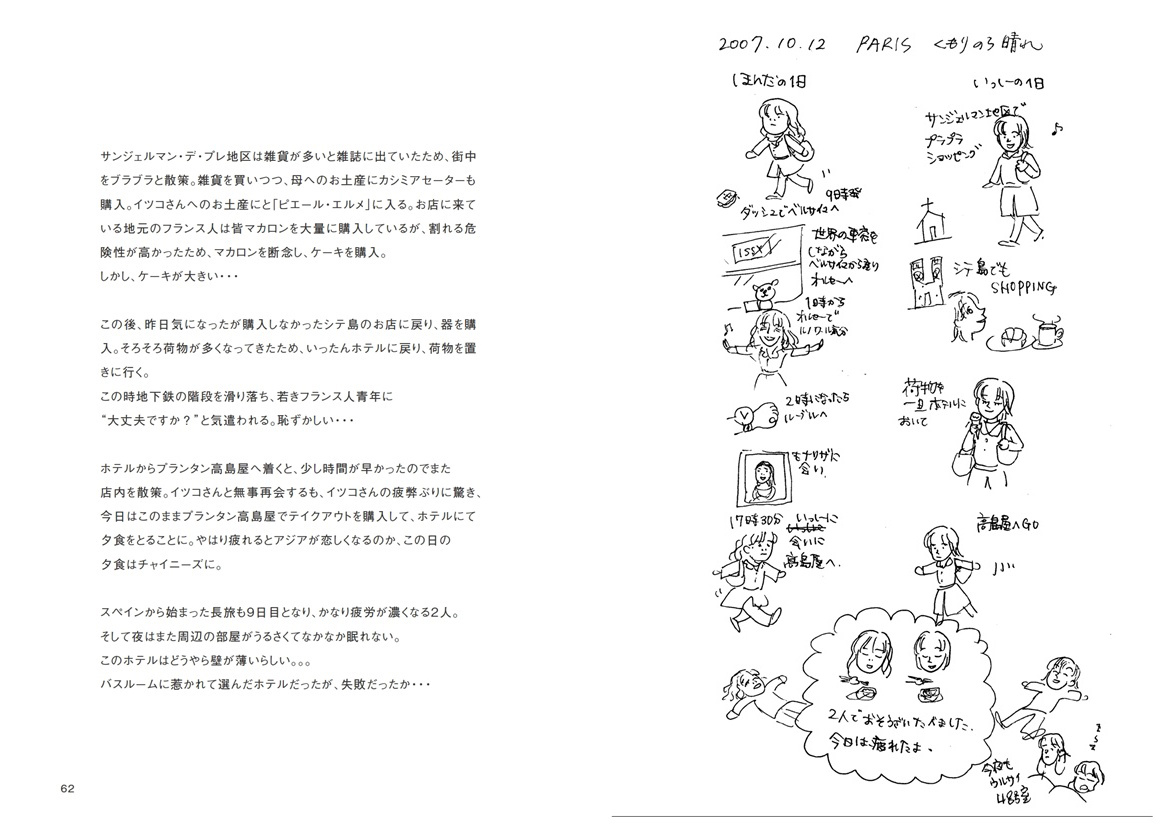 サンジェルマン・デ・プレ地区は雑貨が多いと雑誌に出ていたため、街中
をブラブラと散策。雑貨を買いつつ、母へのお土産にカシミアセーターも
購入。イツコさんへのお土産にと「ピエール・エルメ」に入る。お店に来て
いる地元のフランス人は皆マカロンを大量に購入しているが、割れる危
険性が高かったため、マカロンを断念し、ケーキを購入。
しかし、ケーキが大きい・・・
この後、昨日気になったが購入しなかったシテ島のお店に戻り、器を購
入。そろそろ荷物が多くなってきたため、いったんホテルに戻り、荷物を置
きに行く。
この時地下鉄の階段を滑り落ち、若きフランス人青年に
“大丈夫ですか？”と気遣われる。恥ずかしい・・・
ホテルからプランタン高島屋へ着くと、少し時間が早かったのでまた
店内を散策。イツコさんと無事再会するも、イツコさんの疲弊ぶりに驚き、
今日はこのままプランタン高島屋でテイクアウトを購入して、ホテルにて
夕食をとることに。やはり疲れるとアジアが恋しくなるのか、この日の
夕食はチャイニーズに。
スペインから始まった長旅も9日目となり、かなり疲労が濃くなる2人。
そして夜はまた周辺の部屋がうるさくてなかなか眠れない。
このホテルはどうやら壁が薄いらしい。。。
バスルームに惹かれて選んだホテルだったが、失敗だったか・・・
62
2007.10.12 PARIS くもりのち晴れ
ほんだの1日
9時発
ダッシュでベルサイユへ
世界の車窓を
しながら
ベルサイユから戻り
オルセーへ
1時から
オルセーで
ルノワール気分
2時になったら
ルーブルへ
モナリザに
会い
17時30分 いっしーに
会いに
高島屋へ.
いっしーの1日
サンジェルマン地区で
ブラブラ
ショッピング
シテ島でも
SHOPPING
荷物を
一旦ホテルに
おいて
高島屋へGO
2人でおそうざいたべました.
今日は疲れたよ.
今夜も
ウルサイ
48号室